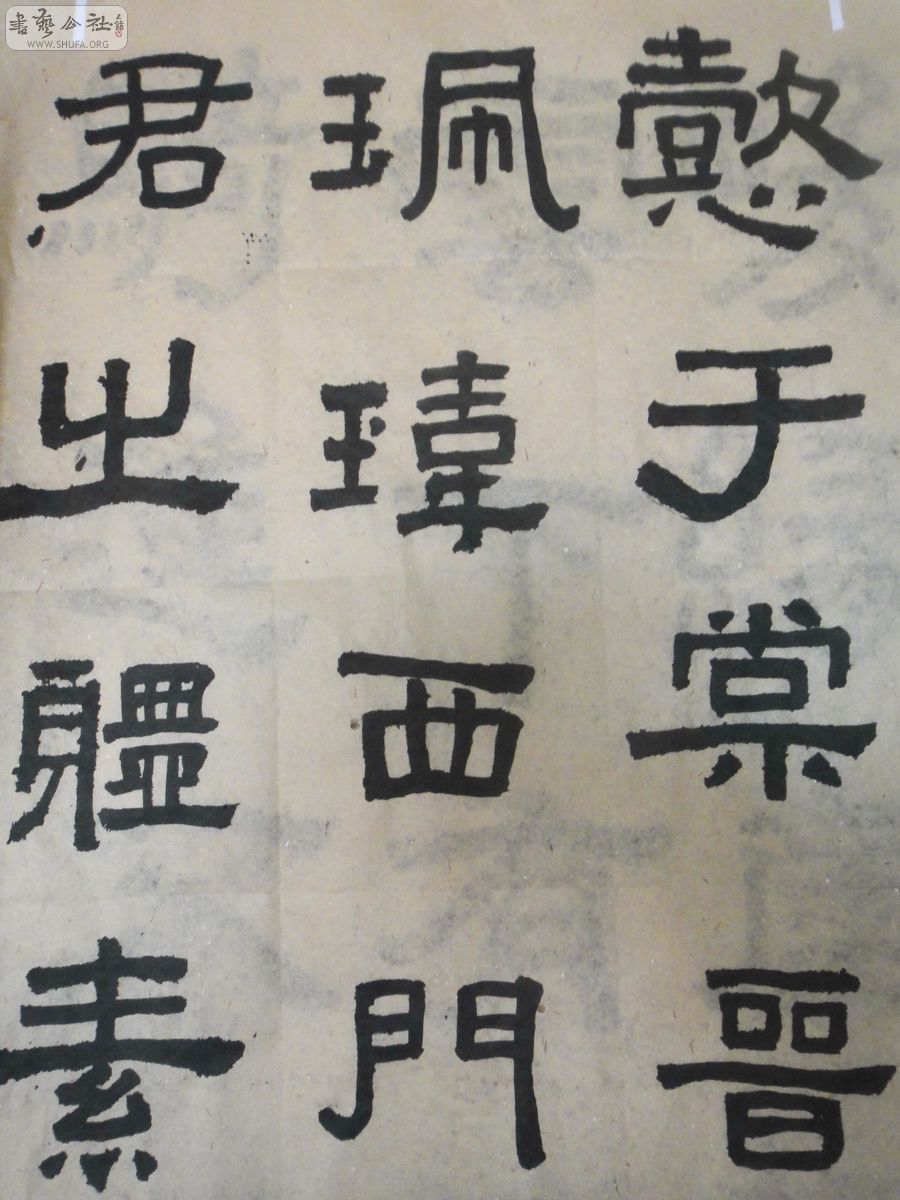 書藝公社
WWW.SHUFA.ORG
懿于棠晉
珮瑋西門
君之體素